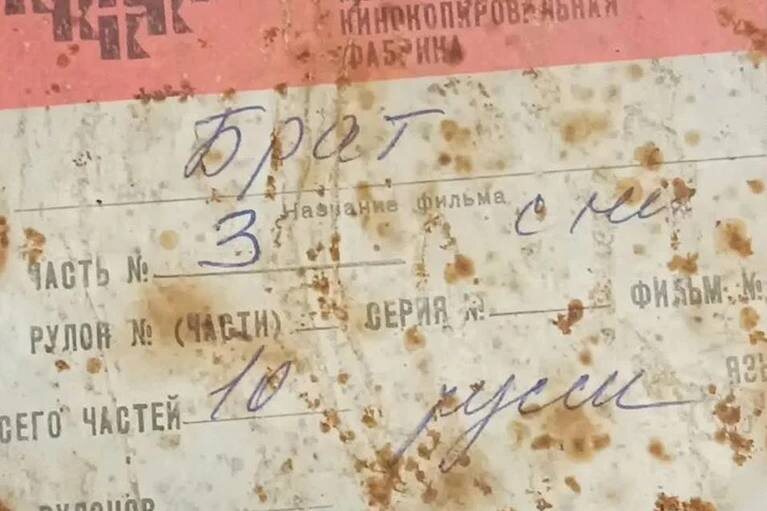 КИНОКОПИРОВАЛЬНАЯ
ФАБРИКА
Брат
Название фильма
ЧАСТЬ № 3
РУЛОН № (ЧАСТИ) СЕРИЯ № ФИЛЬМ №
ВСЕГО ЧАСТЕЙ 10 русск
РУЛОНОВ